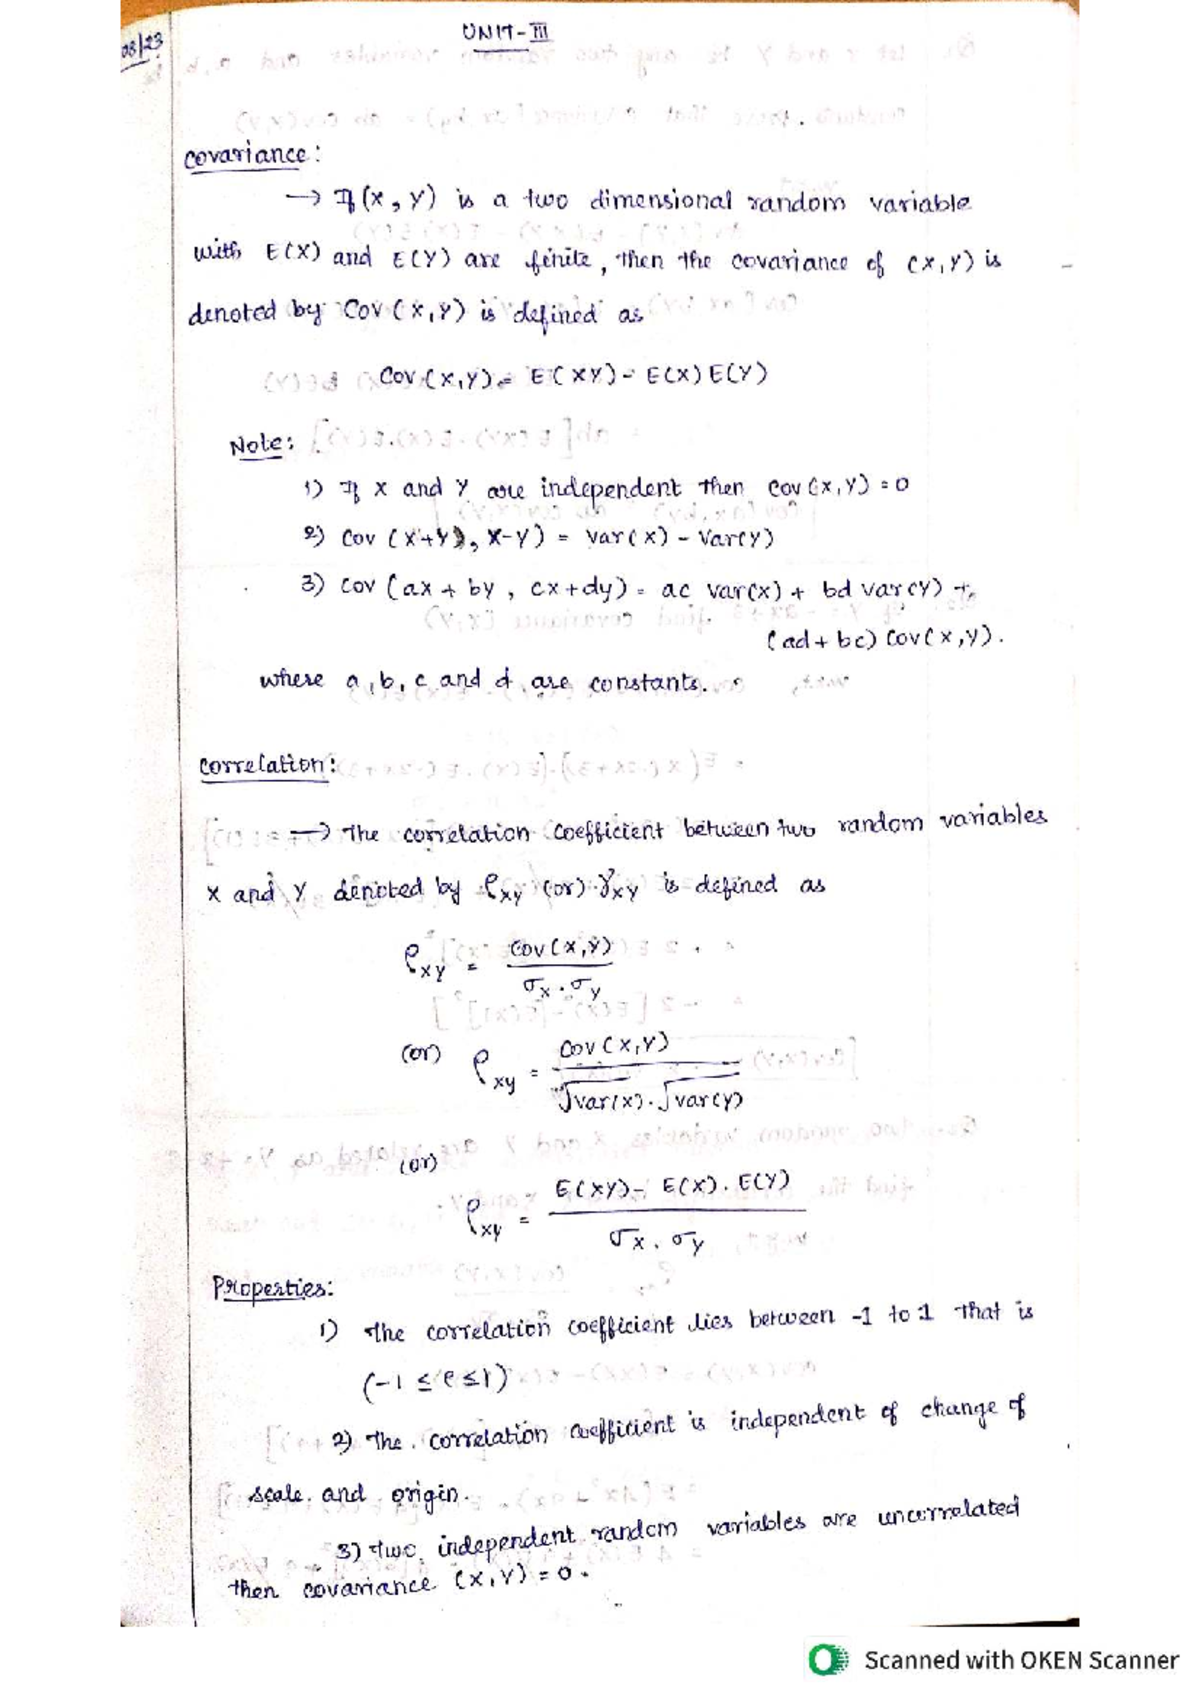 08/23
UNIT-III
Covariance:
→ If (X, Y) is a two dimensional random variable
with E(X) and E(Y) are finite, then the covariance of (X,Y) is
denoted by Cov(X,Y) is defined as
Cov(X,Y) = E(XY) - E(X) E(Y)
Note:
1) If X and Y are independent then Cov(X,Y) = 0
2) Cov (X+Y), X-Y) = Var(X) - Var(Y)
3) Cov (ax + by, cx + dy) = ac var(x) + bd var(y) +
(ad + bc) Cov(X,Y).
where a, b, c and d are constants.
Correlation:
→ The correlation coefficient between two random variables
X and Y denoted by ρxy (or) γxy is defined as
ρxy = Cov(X,Y) / σx . σy
(or) ρxy = Cov(X,Y) / √var(x) . √var(y)
(or)
ρxy = E(XY) - E(X) . E(Y) / σx . σy
Properties:
1) The correlation coefficient lies between -1 to 1 that is
(-1 ≤ ρ ≤ 1)
2) The correlation coefficient is independent of change of
scale and origin.
3) Two independent random variables are uncorrelated
then covariance (X,Y) = 0.
Scanned with OKEN Scanner